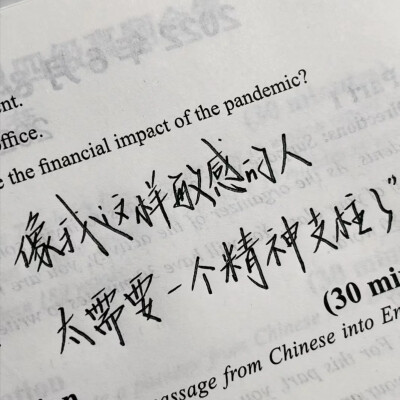 nt.
ffice.
e the financial impact of the pandemic?
像我这样敏感的人
太需要一个精神支柱了”
(30 mi
assage from Chinese into En